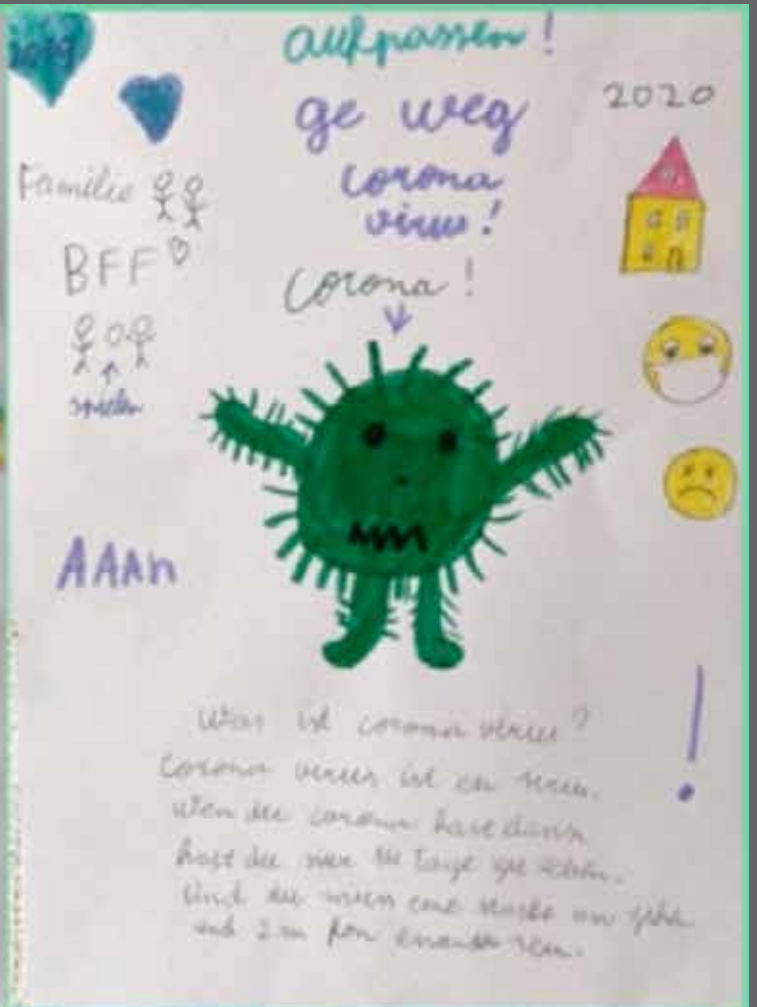 2019
aufpassen!
ge weg
corona
virus!
2020
Familie
BFF
Corona!
spielen
AAAh
Was ist corona virus?
Corona virus ist ein virus.
Wen du corona hast dann
hast du nur Tage
Und du muss eine Maske an
und 2m fon einander sein.
!